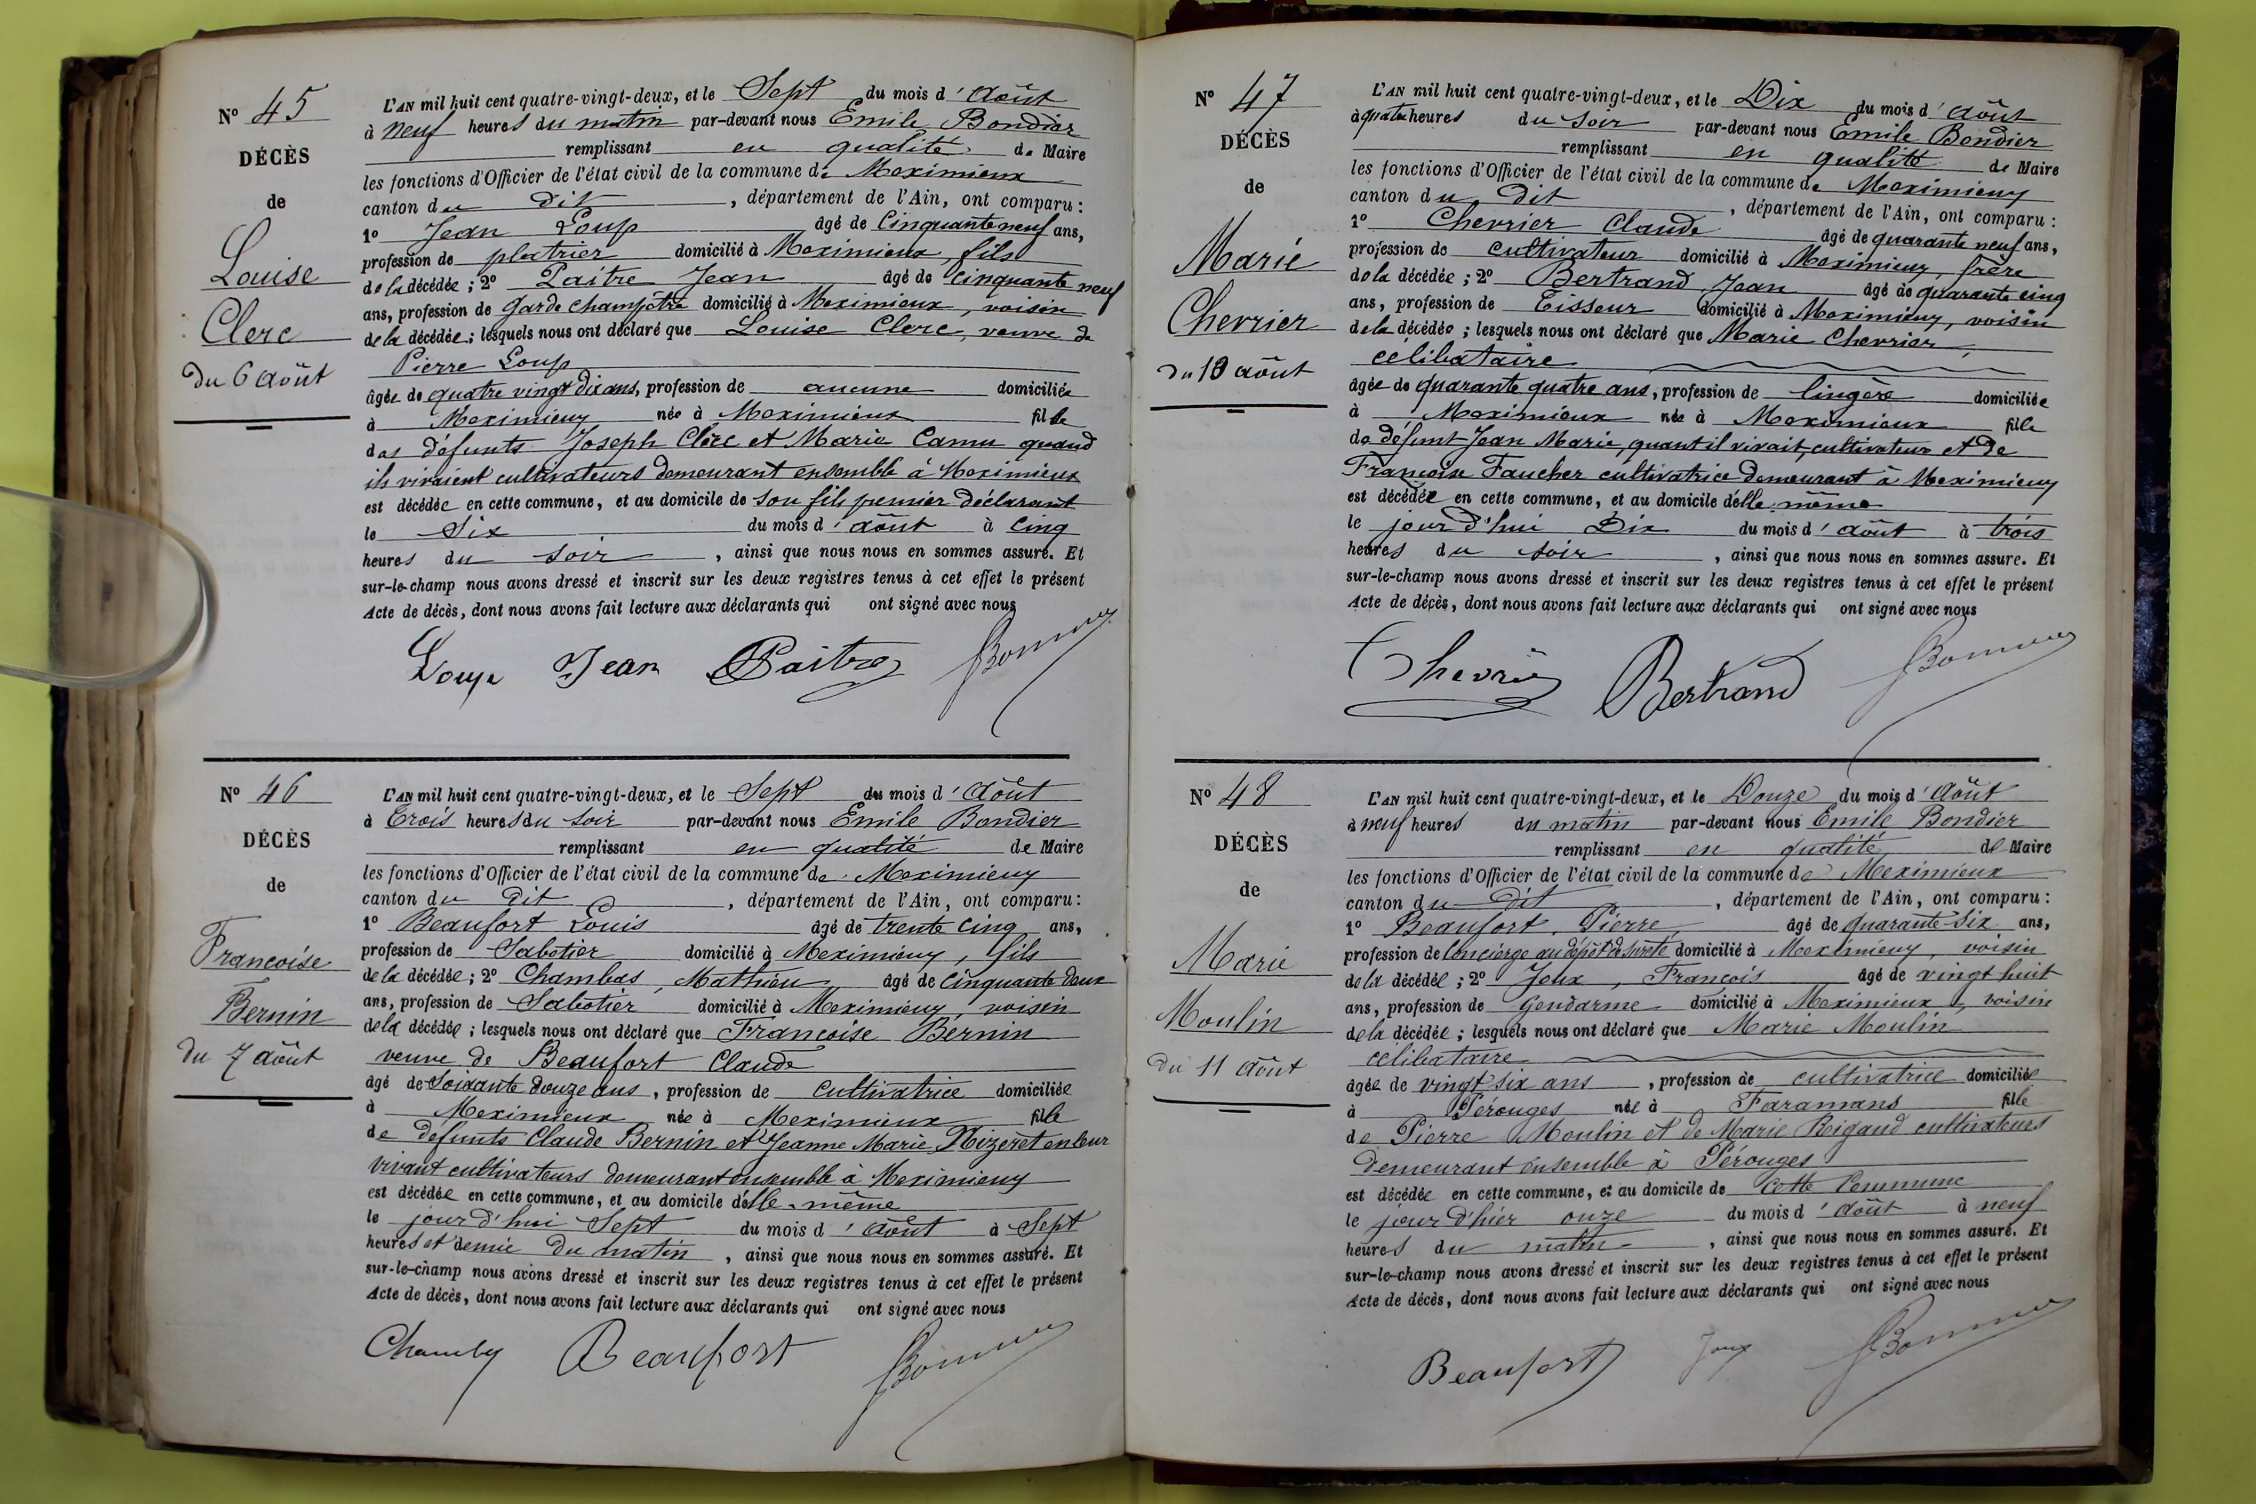 Nº 45
DÉCÈS
de
Louise
Clerc
du 6 août
L'AN mil huit cent quatre-vingt-deux, et le Sept du mois d'août
à neuf heures du matin par-devant nous Emile Bondier
remplissant en qualité de Maire
les fonctions d'Officier de l'état civil de la commune de Meximieux
canton du dit, département de l'Ain, ont comparu :
1º Jean Loup âgé de Cinquante neuf ans,
profession de platrier domicilié à Meximieux, fils
de la décédée ; 2º Paitre Jean âgé de cinquante neuf
ans, profession de Garde champêtre domicilié à Meximieux, voisin
de la décédée ; lesquels nous ont déclaré que Louise Clerc, veuve de
Pierre Loup
âgée de quatre vingt dix ans, profession de aucune domiciliée
à Meximieux née à Meximieux fille
des défunts Joseph Clerc et Marie Camu quand
ils vivaient cultivateurs demeurant ensemble à Meximieux
est décédée en cette commune, et au domicile de son fils premier déclarant
le Six du mois d'août à cinq
heures du soir, ainsi que nous nous en sommes assuré. Et
sur-le-champ nous avons dressé et inscrit sur les deux registres tenus à cet effet le présent
Acte de décès, dont nous avons fait lecture aux déclarants qui ont signé avec nous
Loup Jean Paitre
Nº 46
DÉCÈS
de
Francoise
Bernin
du 7 août
L'AN mil huit cent quatre-vingt-deux, et le Sept du mois d'août
à Trois heures du soir par-devant nous Emile Bondier
remplissant en qualité de Maire
les fonctions d'Officier de l'état civil de la commune de Meximieux
canton du dit, département de l'Ain, ont comparu :
1º Beaufort Louis âgé de trente cinq ans,
profession de Sabotier domicilié à Meximieux, fils
de la décédée ; 2º Chambas, Mathieu âgé de cinquante deux
ans, profession de Sabotier domicilié à Meximieux, voisin
de la décédée ; lesquels nous ont déclaré que Francoise Bernin
veuve de Beaufort Claude
âgé de Soixante douze ans, profession de cultivatrice domiciliée
à Meximieux née à Meximieux fille
de défunts Claude Bernin et Jeanne Marie Mizeret en leur
vivant cultivateurs demeurant ensemble à Meximieux
est décédée en cette commune, et au domicile d'elle-même
le jour d'hui Sept du mois d'août à Sept
heures et demie du matin, ainsi que nous nous en sommes assuré. Et
sur-le-champ nous avons dressé et inscrit sur les deux registres tenus à cet effet le présent
Acte de décès, dont nous avons fait lecture aux déclarants qui ont signé avec nous
Beaufort
Nº 47
DÉCÈS
de
Marie
Chevrier
du 10 août
L'AN mil huit cent quatre-vingt-deux, et le Dix du mois d'août
à quatre heures du soir par-devant nous Emile Bondier
remplissant en qualité de Maire
les fonctions d'Officier de l'état civil de la commune de Meximieux
canton du dit, département de l'Ain, ont comparu :
1º Chevrier Claude âgé de quarante neuf ans,
profession de cultivateur domicilié à Meximieux, frère
de la décédée ; 2º Bertrand Jean âgé de quarante cinq
ans, profession de Tisseur domicilié à Meximieux, voisin
de la décédée ; lesquels nous ont déclaré que Marie Chevrier,
célibataire
âgée de quarante quatre ans, profession de lingère domiciliée
à Meximieux née à Meximieux fille
de défunt Jean Marie, quant il vivait, cultivateur et de
Françoise Faucher cultivatrice demeurant à Meximieux
est décédée en cette commune, et au domicile d'elle même
le jour d'hui Dix du mois d'août à trois
heures du soir, ainsi que nous nous en sommes assuré. Et
sur-le-champ nous avons dressé et inscrit sur les deux registres tenus à cet effet le présent
Acte de décès, dont nous avons fait lecture aux déclarants qui ont signé avec nous
Chevrier Bertrand
Nº 48
DÉCÈS
de
Marie
Moulin
du 11 août
L'AN mil huit cent quatre-vingt-deux, et le Douze du mois d'août
à neuf heures du matin par-devant nous Emile Bondier
remplissant en qualité de Maire
les fonctions d'Officier de l'état civil de la commune de Meximieux
canton du dit, département de l'Ain, ont comparu :
1º Beaufort, Pierre âgé de quarante six ans,
profession de Concierge au dépôt de sureté domicilié à Meximieux, voisin
de la décédée ; 2º Joux, François âgé de vingt huit
ans, profession de Gendarme domicilié à Meximieux, voisin
de la décédée ; lesquels nous ont déclaré que Marie Moulin
célibataire
âgée de vingt six ans, profession de cultivatrice domiciliée
à Pérouges née à Faramans fille
de Pierre Moulin et de Marie Rigaud cultivateurs
demeurant ensemble à Pérouges
est décédée en cette commune, et au domicile de cette commune
le jour d'hier onze du mois d'août à neuf
heures du matin, ainsi que nous nous en sommes assuré. Et
sur-le-champ nous avons dressé et inscrit sur les deux registres tenus à cet effet le présent
Acte de décès, dont nous avons fait lecture aux déclarants qui ont signé avec nous
Beaufort Joux